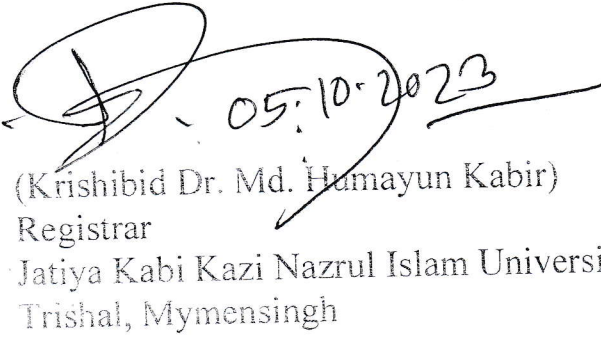 05.10.2023
(Krishibid Dr. Md. Humayun Kabir)
Registrar
Jatiya Kabi Kazi Nazrul Islam Universi
Trishal, Mymensingh